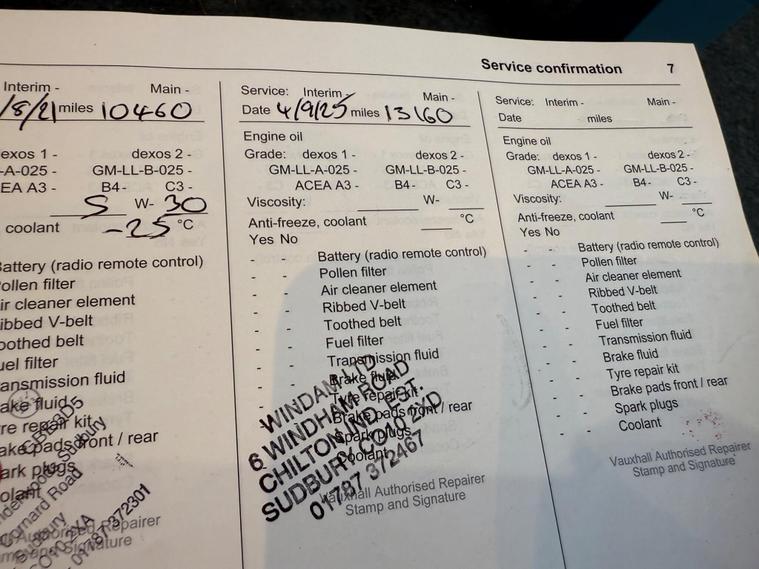 Service confirmation 7
Interim - Main -
/8/21 miles 10460
dexos 1 - dexos 2 -
-A-025 - GM-LL-B-025 -
EA A3 - B4- C3 -
5 W- 30
coolant -25 °C
Battery (radio remote control)
Pollen filter
ir cleaner element
ibbed V-belt
oothed belt
uel filter
ansmission fluid
ake fluid
re repair kit
ake pads front / rear
ark plugs
olant
Cornard Road
Sudbury
CO10 2XA
01787 372301
Authorised Repairer
Signature
Service: Interim - Main -
Date 4/9/25 miles 13160
Engine oil
Grade: dexos 1 - dexos 2 -
GM-LL-A-025 - GM-LL-B-025 -
ACEA A3 - B4- C3 -
Viscosity: W-
Anti-freeze, coolant °C
Yes No
- - Battery (radio remote control)
- - Pollen filter
- - Air cleaner element
- - Ribbed V-belt
- - Toothed belt
- - Fuel filter
- - Transmission fluid
- - Brake fluid
- - Tyre repair kit
- - Brake pads front / rear
Spark plugs
Coolant
WINDAM LTD
6 WINDHAM ROAD
CHILTON IND. EST.
SUDBURY CO10 2XD
01787 372467
Vauxhall Authorised Repairer
Stamp and Signature
Service: Interim - Main -
Date miles
Engine oil
Grade: dexos 1 - dexos 2 -
GM-LL-A-025 - GM-LL-B-025 -
ACEA A3 - B4- C3 -
Viscosity: W-
Anti-freeze, coolant °C
Yes No
- - Battery (radio remote control)
- - Pollen filter
- - Air cleaner element
- - Ribbed V-belt
- - Toothed belt
- - Fuel filter
- - Transmission fluid
- - Brake fluid
- - Tyre repair kit
- - Brake pads front / rear
- - Spark plugs
- - Coolant
Vauxhall Authorised Repairer
Stamp and Signature